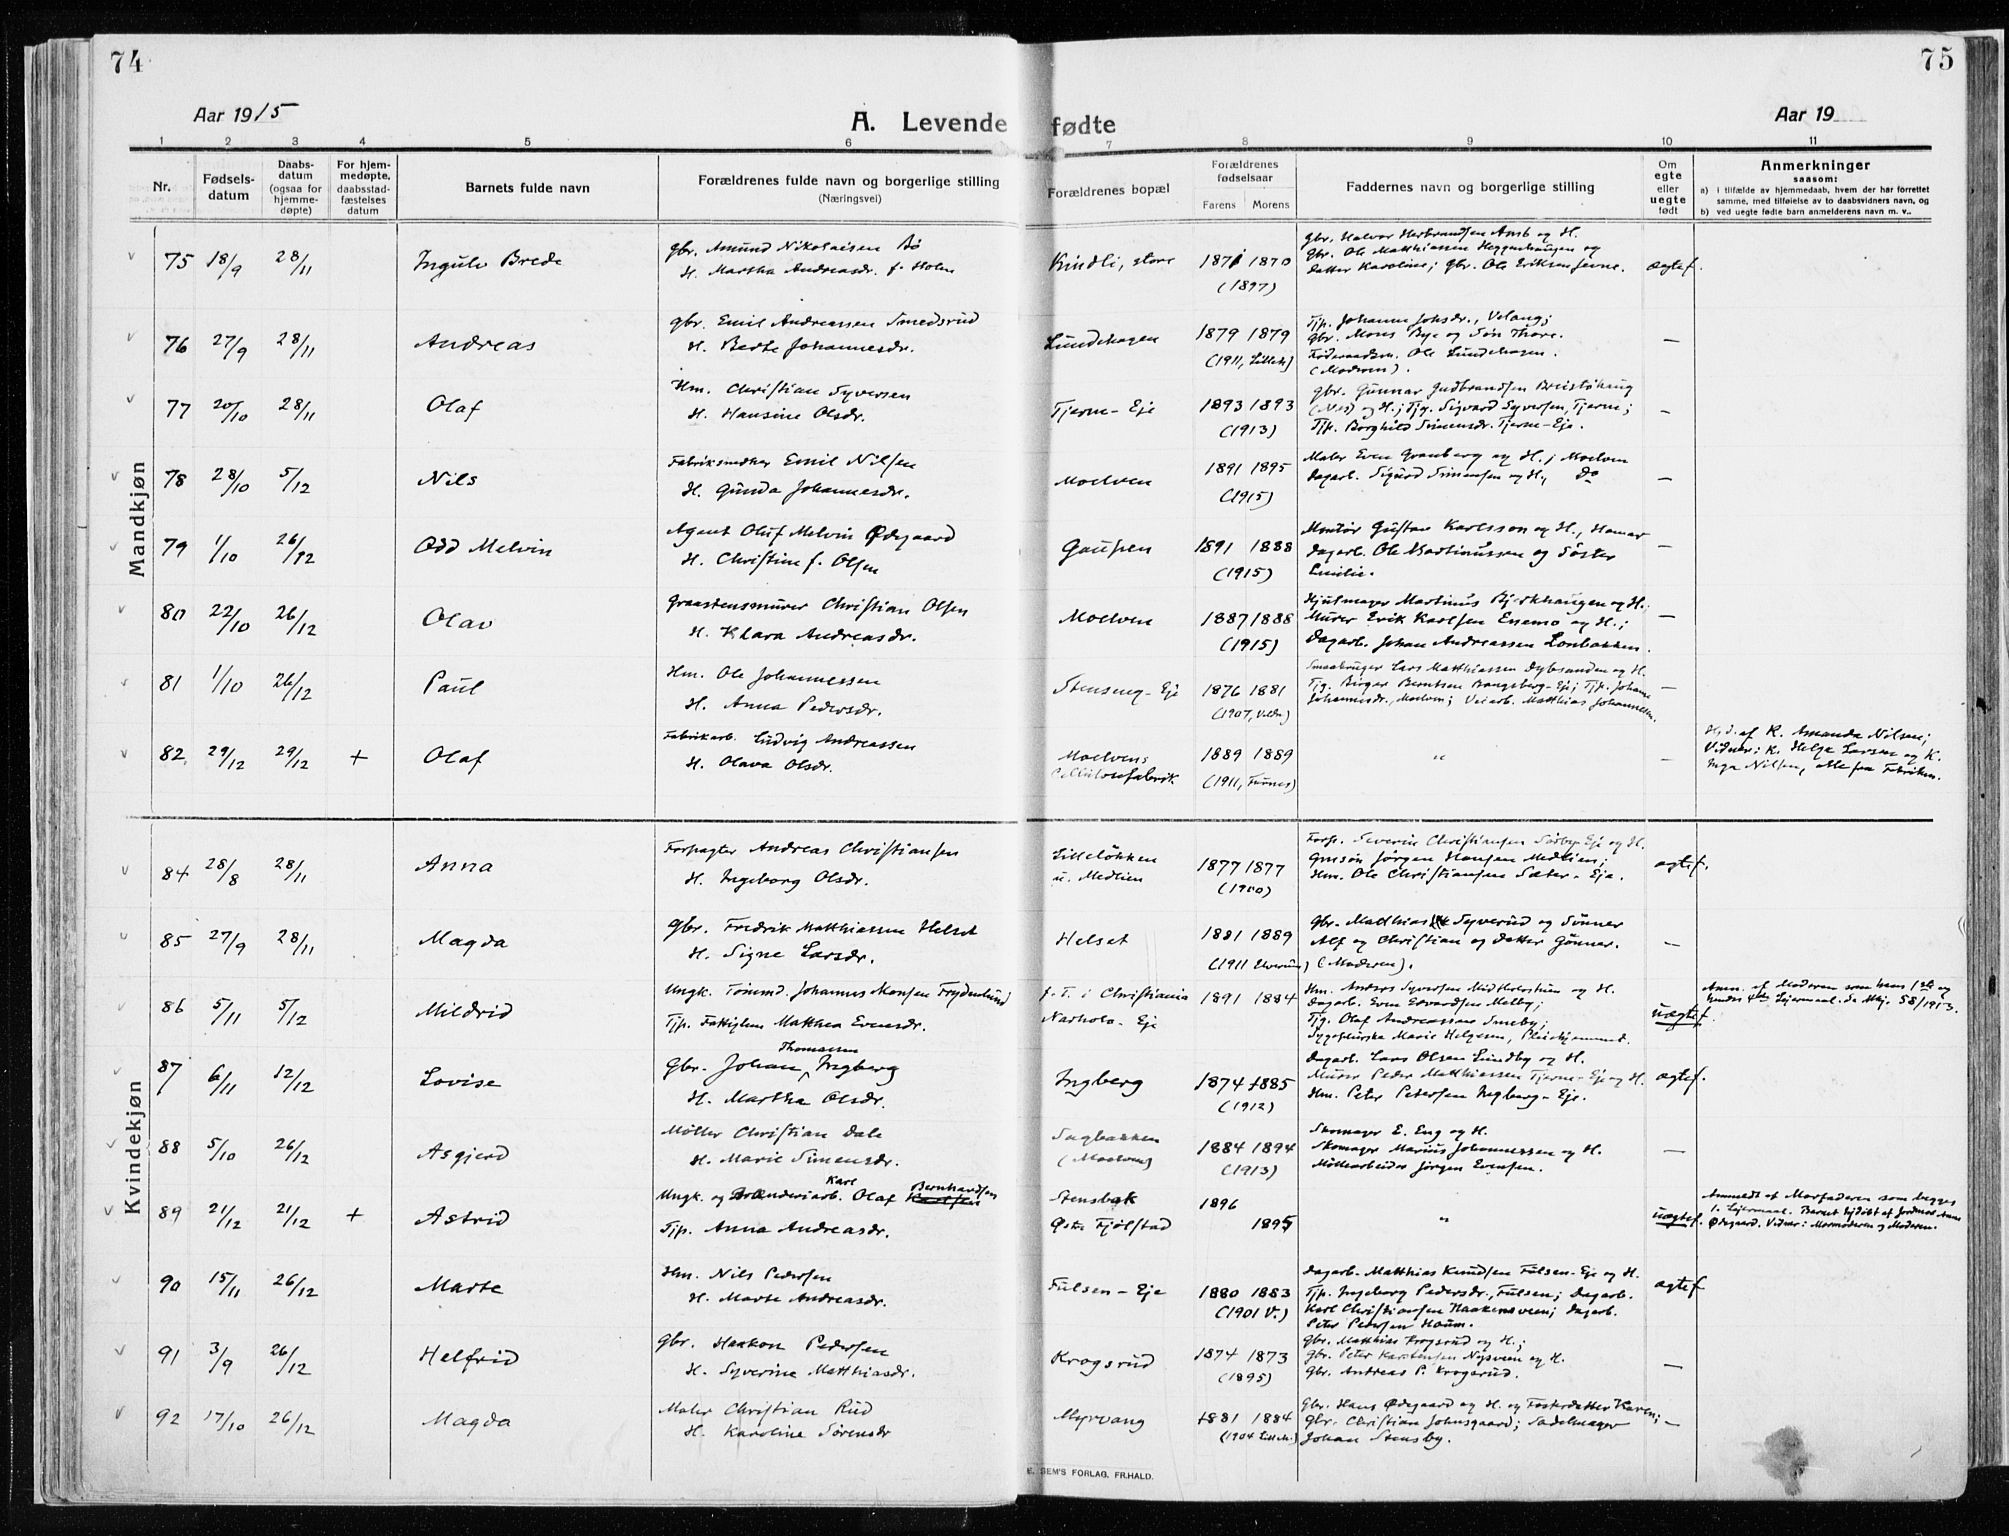 74
75
Aar 1915
A. Levende fødte
Aar 19
1 2 3 4 5 6 7 8 9 10 11
Nr.
Fødsels-
datum
Daabs-
datum
(ogsaa for
hjemme-
døpte)
For hjem-
medøpte,
daabsstad-
fæstelses
datum
Barnets fulde navn
Forældrenes fulde navn og borgerlige stilling
(Næringsvei)
Forældrenes bopæl
Forældrenes
fødselsaar
Farens Morens
Faddernes navn og borgerlige stilling
Om
egte
eller
uegte
født
Anmerkninger
saasom:
a) i tilfælde av hjemmedaab, hvem der har forrettet
samme, med tilføielse av to daabsvidners navn, og
b) ved uegte fødte barn anmelderens navn m. v..
Mandkjøn
75 18/9 28/11 Ingulv Brede
gbr. Amund Nikolaisen Bø
H. Martha Andreasdr. f. Holm
Kindli, store 1871 1870
(1897)
gbr. Halvor Herbrandsen Amb og H.
gbr. Ole Matthiassen Heggenhaugen og
datter Karoline; gbr. Ole Eriksen Jevne.
ægtef.
76 27/9 28/11 Andreas
gbr. Emil Andreassen Smedsrud
H. Berte Johannesdr.
Lundehagen 1879 1879
(1911, Lilleh.)
Tjp. Johanne Johsdr., Velang;
gbr. Mons Bye og Søn Thore.
Føderaadsm. Ole Lundehagen.
(Moelven).
—
77 20/10 28/11 Olaf
Hm. Christian Syversen
H. Hansine Olsdr.
Tjerne-Eje 1893 1893
(1913)
gbr. Gunnar Gudbrandsen Breistøhaug
(Nes) og H.; Tjg. Sigvard Syversen, Tjerne;
Tjp. Borghild Simensdr. Tjerne-Eje.
—
78 28/10 5/12 Nils
Emil Nilsen
H. Gunda Johannesdr.
Moelven 1891 1895
(1915)
Maler Even Granberg og H.; Moelven
dagarb. Sigurd Simensen og H., do
—
79 1/10 26/12 Odd Melvin
Agent Oluf Melvin Ødegaard
H. Christine f. Olsen
Gaupen 1891 1888
(1915)
Montør Gustav Karlsson og H., Hamar
dagarb. Ole Martinussen og Søster
Emilie.
—
80 22/10 26/12 Olav
Graastensmurer Christian Olsen
H. Klara Andreasdr.
Moelven 1887 1888
(1915)
Hjulmager Martinus Bjerkhaugen og H.;
Murer Erik Karlsen Enemo og H.;
Dagarb. Johan Andreassen Lonbakken.
—
81 1/10 26/12 Paul
Hm. Ole Johannessen
H. Anna Pedersdr.
Stenseng-Eje 1876 1881
(1907, Veldr.)
Smaabruger Lars Matthiassen Dybsanden og H.
Tjg. Birger Berntsen Bangsberg-Eje; Tjp. Johane
Johannesdr., Moelven; Veiarb. Matthias Johannessen.
—
82 29/12 29/12 + Olaf
Fabrikarb. Ludvig Andreassen
H. Olava Olsdr.
Moelvens
Cellulosefabrik
1889 1889
(1911, Furnes)
"
—
Hjd. af K. Amanda Nilsen;
Vidner: K. Helga Larsen og K.
Inga Nilsen, alle fra Fabriken.
Kvindekjøn
84 28/8 28/11 Anna
Forpagter Andreas Christiansen
H. Ingeborg Olsdr.
Lilleløkken
u. Medlien
1877 1877
(1900)
Forp. Severin Christiansen Sørby-Eje og H.
Gmsøn Jørgen Hansen Medlien;
Hm. Ole Christiansen Sæter-Eje.
ægtef.
85 27/9 28/11 Magda
gbr. Fredrik Matthiassen Helset
H. Signe Larsdr.
Helset 1881 1889
(1911 Elverum)
gbr. Matthias Syverud og Sønner
Alf og Christian og datter Gunnar.
(Moderen).
—
86 5/11 5/12 Mildrid
Ungk. Tømmd. Johannes Monsen Frydenlund
Tjp. Fattiglem Matthea Evensdr.
f. T. i Christiania
Narholo-Eje
1891 1884
Hm. Anders Syversen Midtholstuen og H.
dagarb. Even Edvardsen Melby;
Tjg. Olaf Andreassen Smeby;
Sygepleierske Marie Helgesen, Pleiehjemmet.
uægtef.
Anm. af Moderen som hans 1ste og
hendes 4de Leiermaal.
87 6/11 12/12 Lovise
Thomassen
Gbr. Johan Ingberg
H. Martha Olsdr.
Ingberg 1874 1885
(1912)
Dagarb. Lars Olsen Lundby og H.
Murer Peder Matthiassen Tjerne-Eje og H.
Hm. Peter Petersen Ingberg-Eje.
ægtef.
88 5/10 26/12 Asgjerd
Møller Christian Dale
H. Marie Simensdr.
Sagbakken
(Moelven)
1884 1894
(1913)
Skomager E. Eng og H.
Skomager Marius Johannessen og H.
Møllearbeider Jørgen Evensen.
—
89 21/12 21/12 + Astrid
Karl Bernhardsen
Ungk. og Olaf Karlsen
Tjp. Anna Andreasdr.
Stensbak
Østre Fjølstad
1896
1895
"
uægtef.
Anmeldt af Morfaderen som begges
1. Leiermaal. Barnet hjdøbt af Jordmor Anne
Ødegaard. Vidner: Mormoderen og Moderen.
90 15/11 26/12 Marte
Hm. Nils Pedersen
H. Marte Andreasdr.
Fulsen-Eje 1880 1883
(1901 V.)
Dagarb. Matthias Knudsen Fulsen-Eje og H.
Tjp. Ingeborg Pedersdr., Fulsen; dagarb.
Karl Christiansen Haakensveen; dagarb.
Peter Pedersen Haum.
ægtef.
91 3/9 26/12 Helfrid
gbr. Haakon Pedersen
H. Syverine Matthiasdr.
Krogsrud 1874 1873
(1895)
gbr. Matthias Krogsrud og H.;
gbr. Peter Karstensen Nysveen og H.
gbr. Andreas P. Krogsrud.
—
92 17/10 26/12 Magda
Maler Christian Rud
H. Karoline Sørensdr
Myrvang 1881 1884
(1904 Lilleh.)
Gbr. Hans Ødegaard og H. og Fosterdatter Karen;
Gbr. Christian Johnsgaard; Sadelmager
Johan Stensby.
—
E. SEM'S FORLAG. FR.HALD.